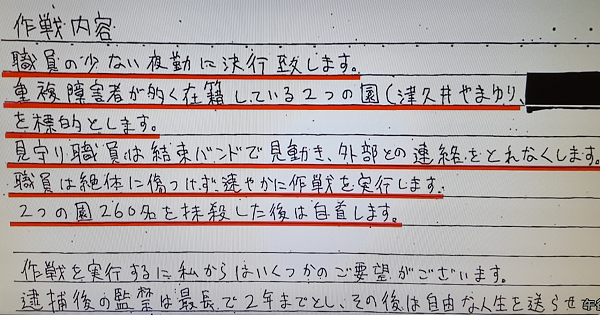 作戦内容
職員の少ない夜勤に決行致します。
重複障害者が多く在籍している2つの園(津久井やまゆり、
を標的とします。
見守り職員は結束バンドで見動き、外部との連絡をとれなくします。
職員は絶体に傷つけず、速やかに作戦を実行します。
2つの園260名を抹殺した後は自首します。
作戦を実行するに私からはいくつかのご要望がございます。
逮捕後の監禁は最長で2年までとし、その後は自由な人生を送らせ